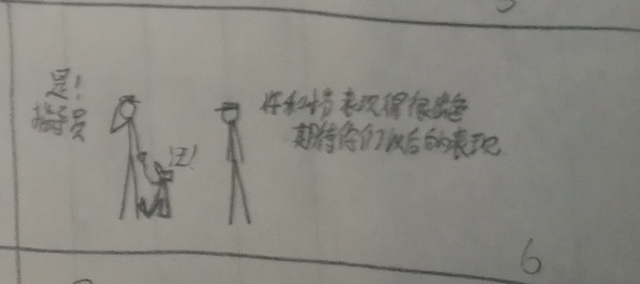 是!
指导员
汪!
你和 表现得很出色
期待你们以后的表现
6